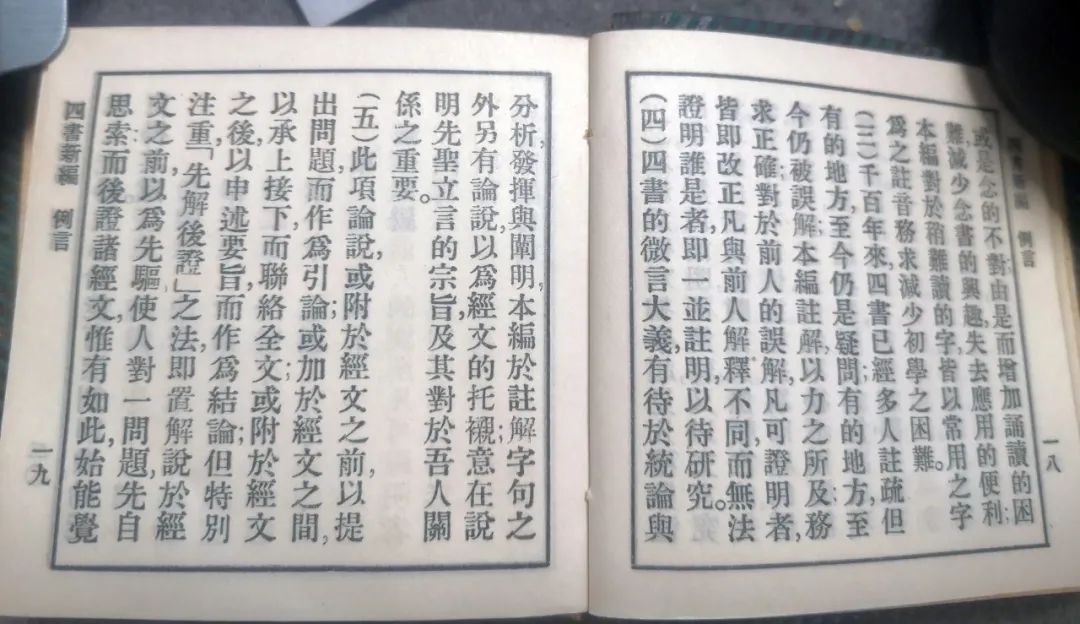 四書新編 例言
一八
或是念的不對,由是而增加誦讀的困
難,減少念書的興趣,失去應用的便利;
本編對於稍難讀的字,皆以常用之字
爲之註音,務求減少初學之困難。
(三)千百年來,四書已經多人註疏,但
有的地方,至今仍是疑問,有的地方,至
今仍被誤解;本編註解,以力之所及,務
求正確;對於前人的誤解,凡可證明者,
皆即改正;凡與前人解釋不同,而無法
證明誰是者,即並註明,以待研究。
(四)四書的微言大義,有待於統論與
分析,發揮與闡明,本編於註解字句之
外,另有論說,以爲經文的托襯,意在說
明先聖立言的宗旨,及其對於吾人關
係之重要。
(五)此項論說,或附於經文之前,以提
出問題,而作爲引論;或加於經文之間,
以承上接下,而聯絡全文;或附於經文
之後,以申述要旨,而作爲結論;但特別
注重「先解後證」之法,即置解說於經
文之前,以爲先驅,使人對一問題,先自
思索,而後證諸經文,惟有如此,始能覺
四書新編 例言
一九